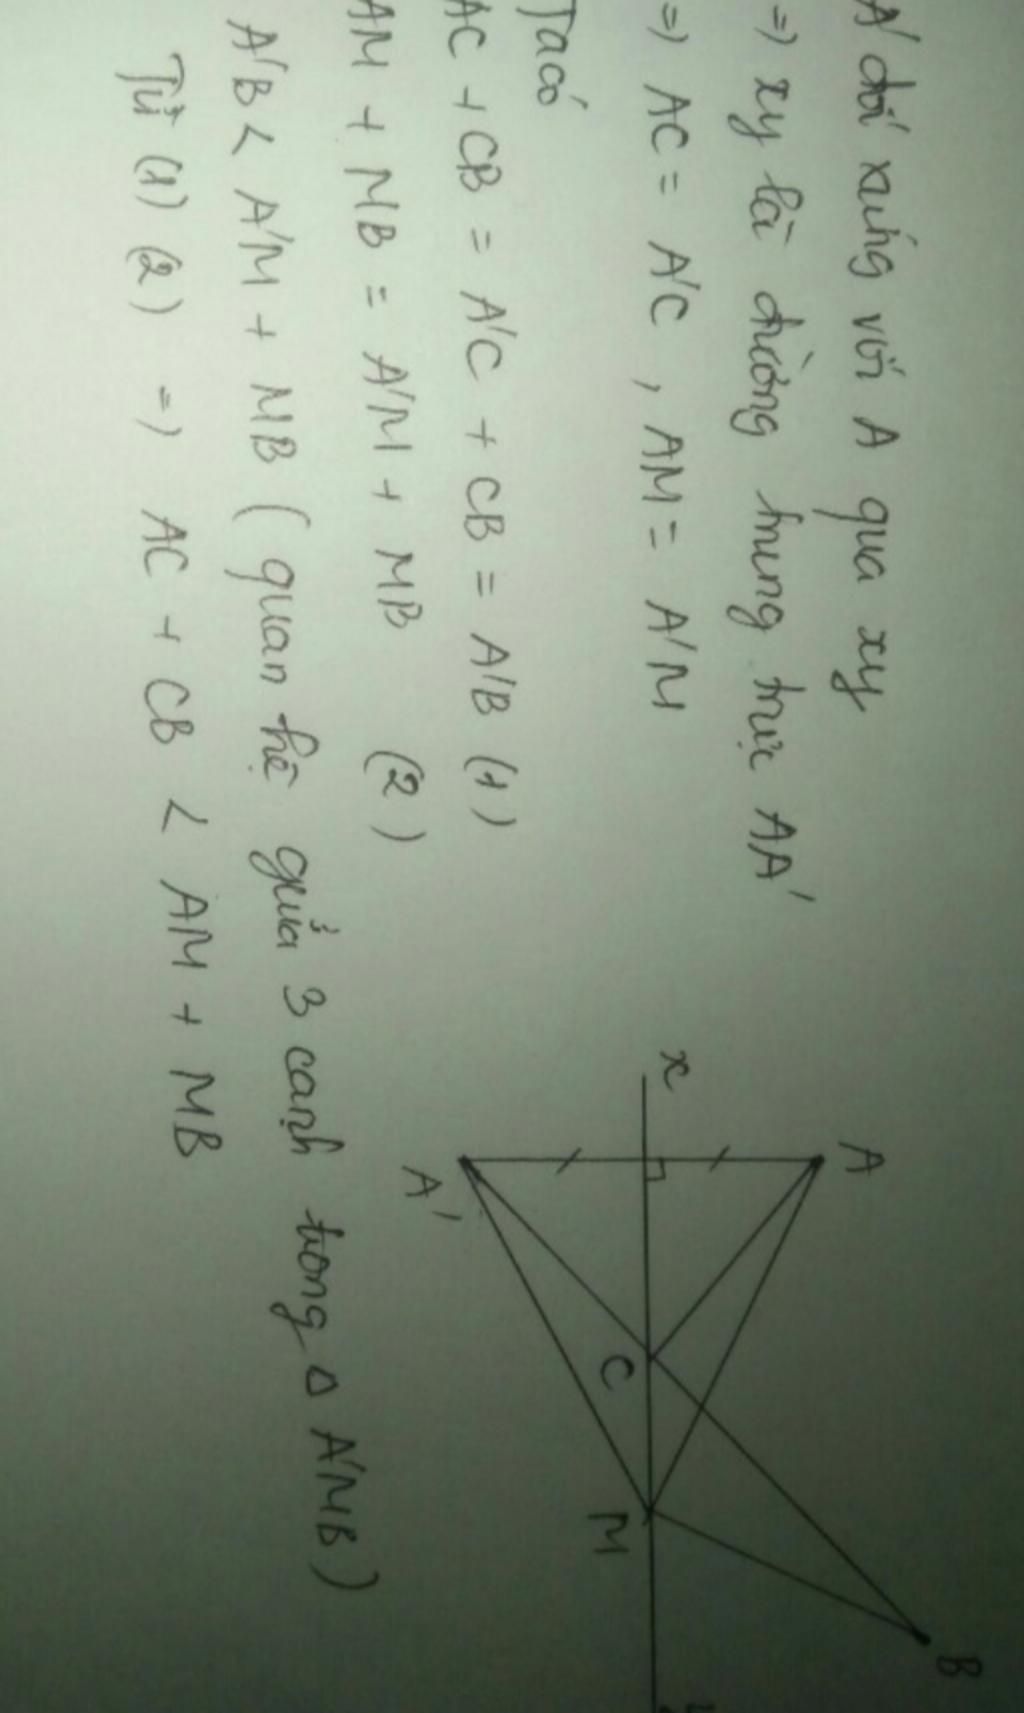 A' đối xứng với A qua xy
=) xy là đường trung trực AA'
=) AC = A'C , AM = A'M
Ta có
AC + CB = A'C + CB = A'B (1)
AM + MB = A'M + MB (2)
A'B < A'M + MB ( quan hệ giữa 3 cạnh trong Δ A'MB )
Từ (1) (2) =) AC + CB < AM + MB
A
B
x
C
M
A'